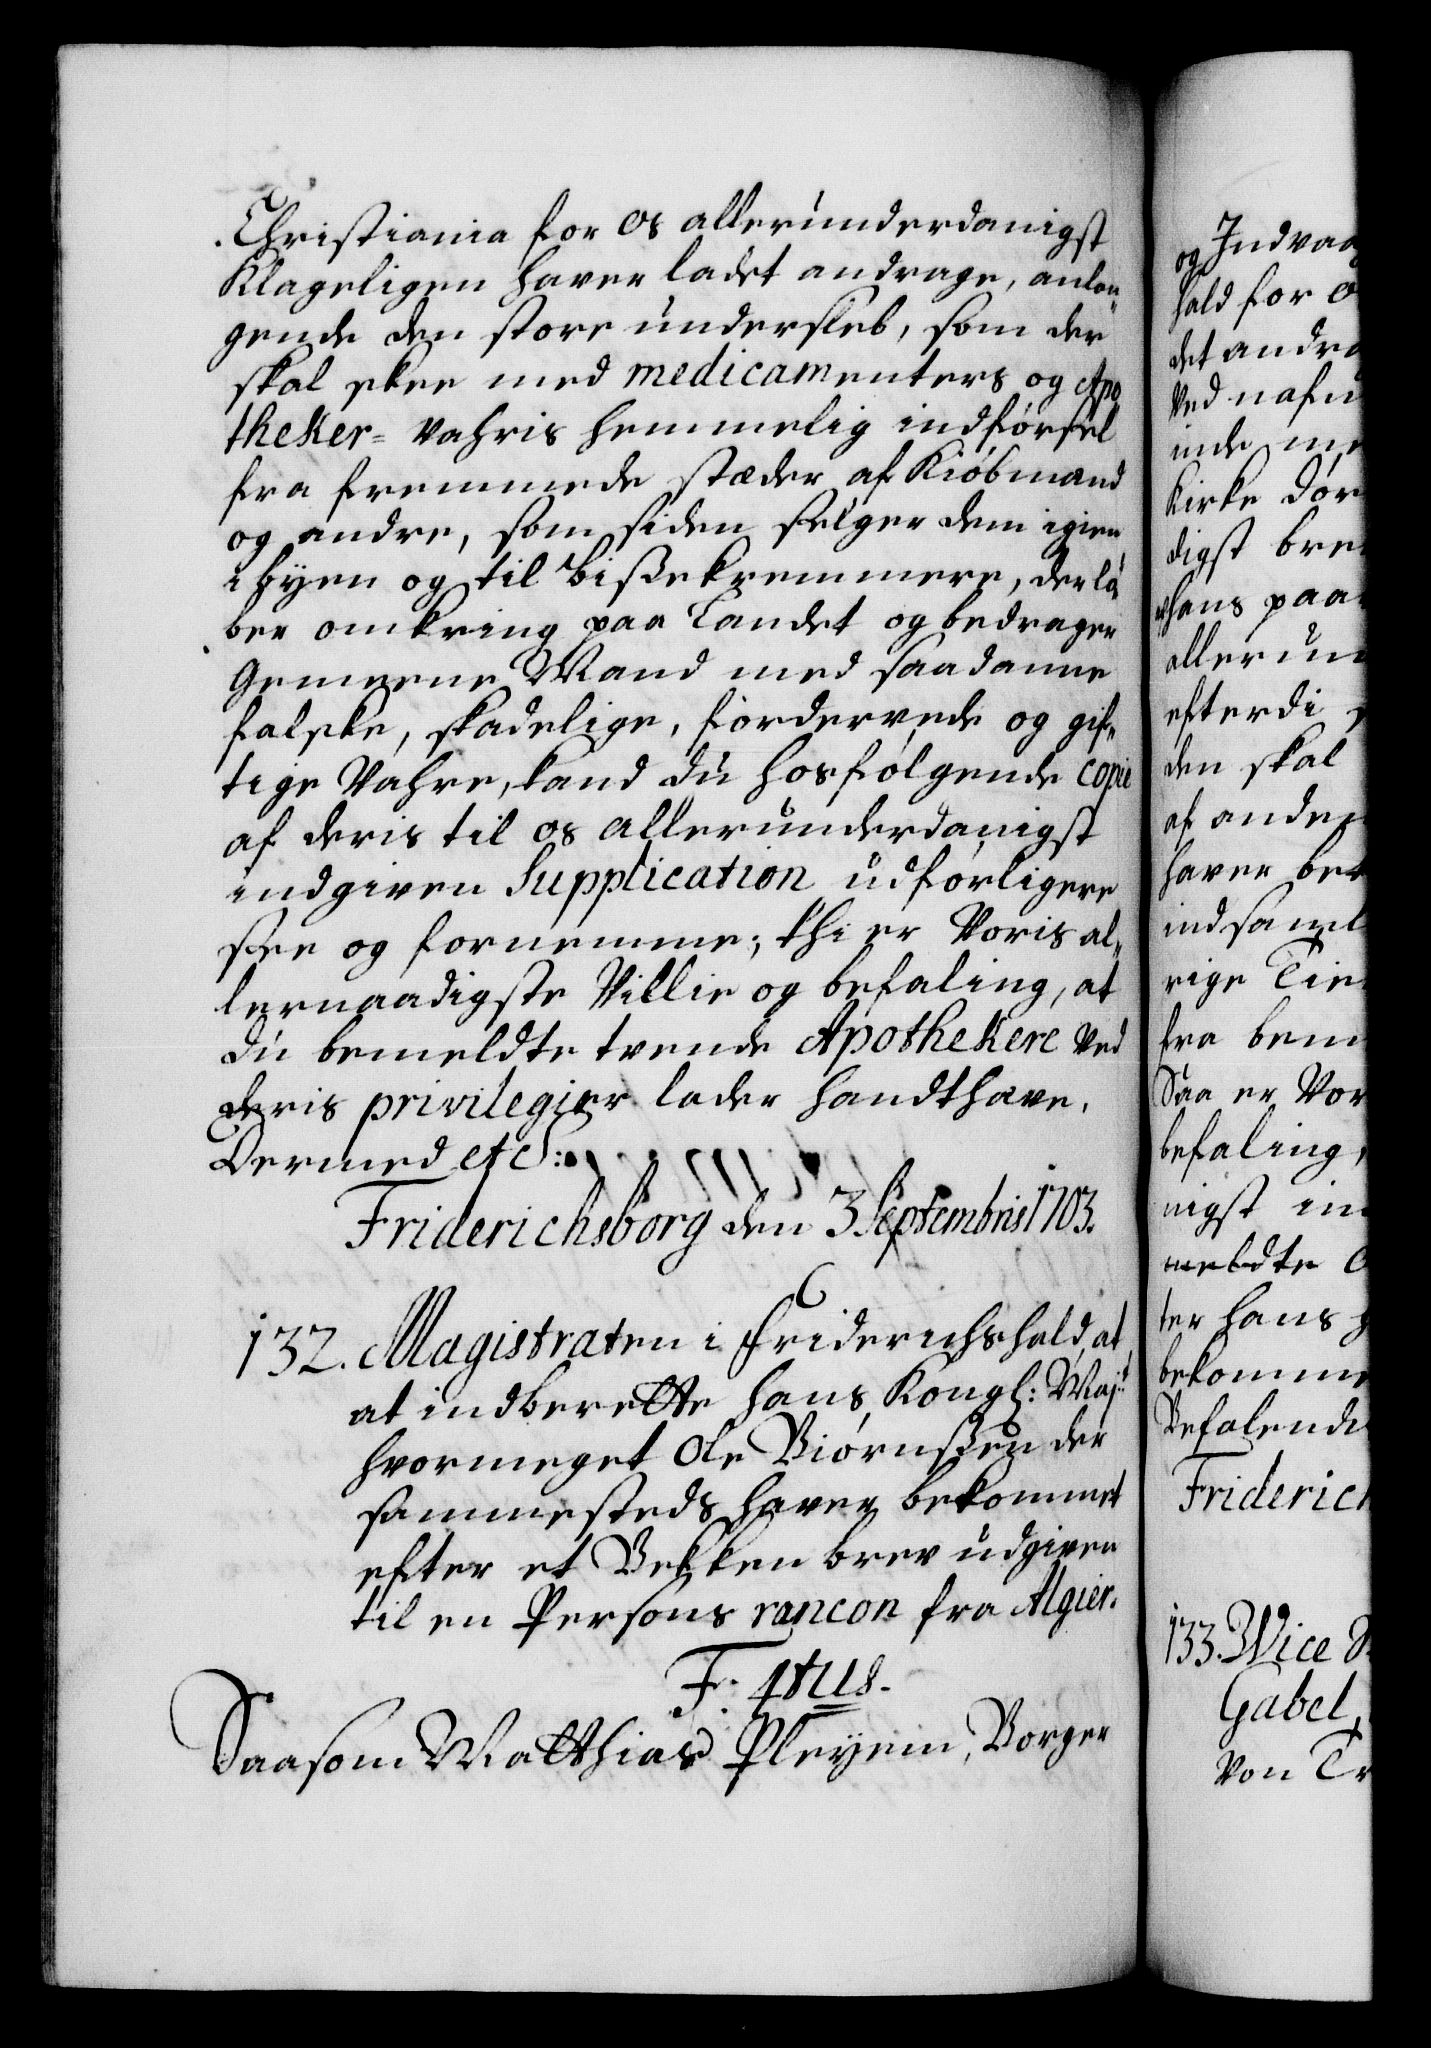 Christiania for os allerunderdanigst
Klageligen haver ladet andrage, anlan-
gende den store undersleb, som der
skal skee med medicamenters og Apo
theker= vahris hemmelig indførsel
fra fremmede stæder af Kiøbmænd
og andre, som siden selger dem igien
i byen og til bissekremmere, der lø
ber omkring paa Landet og bedrager
Gemeene Mand med saadanne
falske, skadelige, fordervede og gif-
tige Vahre, kand du hosfølgende copie
af deris til os allerunderdanigst
indgiven Supplication udførligere
see og fornemme; thi er Voris al-
lernaadigste Villie og befaling, at
du bemeldte tvende Apothekere ved
deris privilegier lader handthæve.
Dermed etc:
Friderichsborg den 3 Septembris 1703.
132. Magistraten i Friderichshald, at
at indberette hans Kongl: Maj:t
hvormeget Ole Biørnssen der
sammesteds haver bekommet
efter et Bekken brev udgiven
til en Persons rancon fra Algier.
F: 4tus.
Saasom Matthias Pleyem, Borger
og Indvaa
hald for o
det andra
Ved nafn
inde me
Kirke Dør
digst bre
hans paa
allerun
efterdi s
den skal
af anden
haver bek
indsaml
rige Tie
fra bem
Saa er Vor
befaling,
nigst in
meldte O
ter hans g
bekomme
Befalende
Friderich
133. Vice S
Gabel,
Von Tr